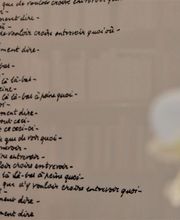 que de vouloir croire entrevoir
ment dire -
de vouloir croire entrevoir quoi où -
ment dire -
bas -
là là-bas -
eine -
là là-bas à peine quoi -
ment dire -
ceci -
ce ceci-ci -
que de voir quoi -
revoir -
ire entrevoir -
loir croire entrevoir -
là là-bas à peine quoi -
que d'y vouloir croire entrevoir quoi -
ment dire -
ment dire